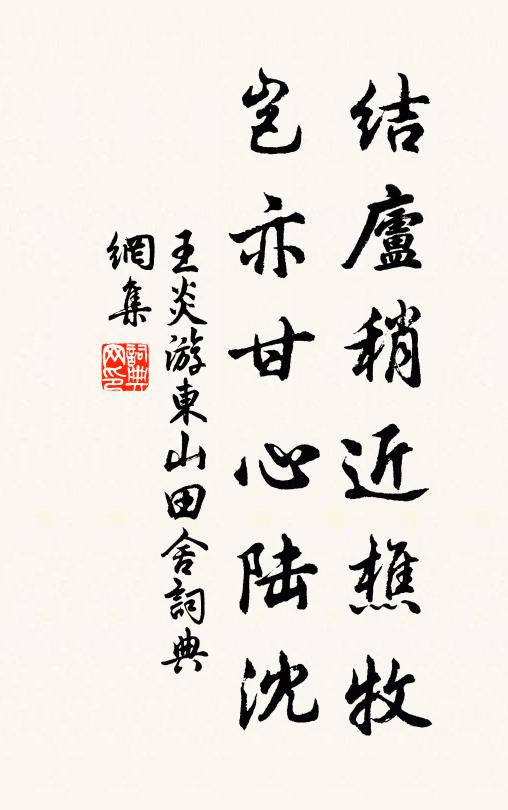 结廬稍近樵牧
岂亦甘心陆沈
王炎游東山田舍詞典
網集
詞典网印